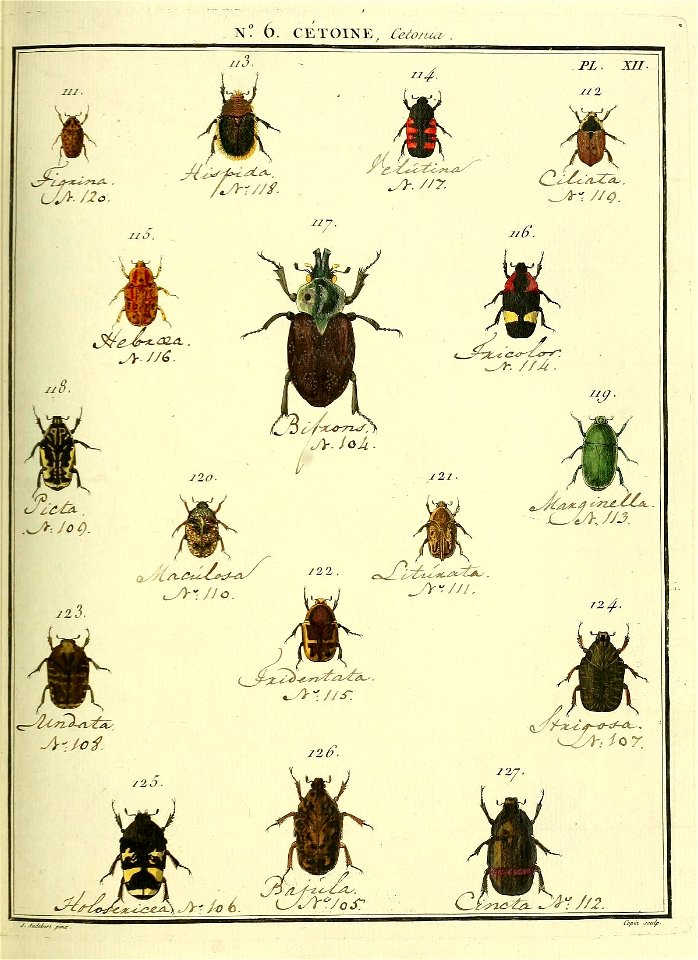 N.º 6. CÉTOINE, Cetonia.
PL. XII.
111.
Tigrina.
N. 120.
113.
Hispida.
Nº 118.
114.
Velutina
N. 117.
112
Ciliata.
Nº 119.
115.
Hebræa.
N. 116.
117.
Bifrons.
N. 104.
116.
Tricolor.
N. 114.
118.
Picta.
N. 109.
119.
Marginella.
N. 113.
120.
Maculosa
Nº 110.
121.
Liturata.
Nº 111.
122.
Tridentata.
Nº 115.
123.
Undata.
Nº 108.
124.
Strigosa.
N. 107.
125.
Holosericea, Nº 106.
126.
Bajula.
Nº 105.
127.
Cincta Nº 112.
J. Audebert pinx.
Copia sculp.